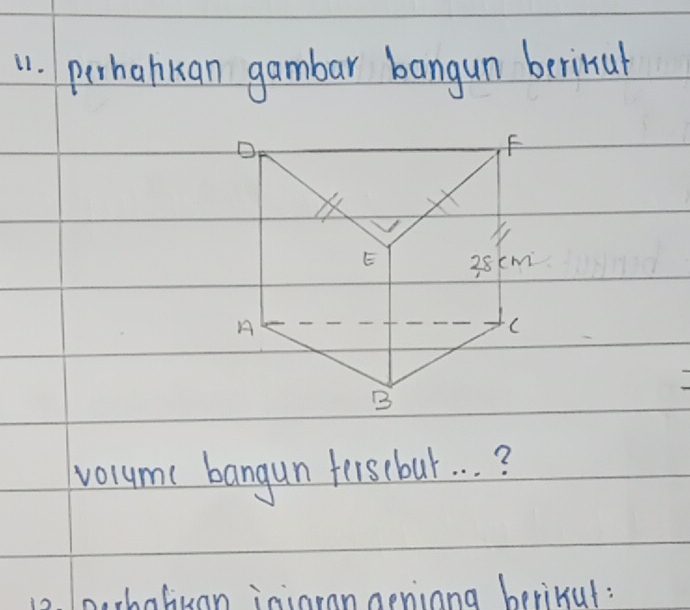 11. perhatikan gambar bangun berikut
D F
E 28 cm
A C
B
volume bangun tersebut ... ?
12. perhatikan jajaran genjang berikut: